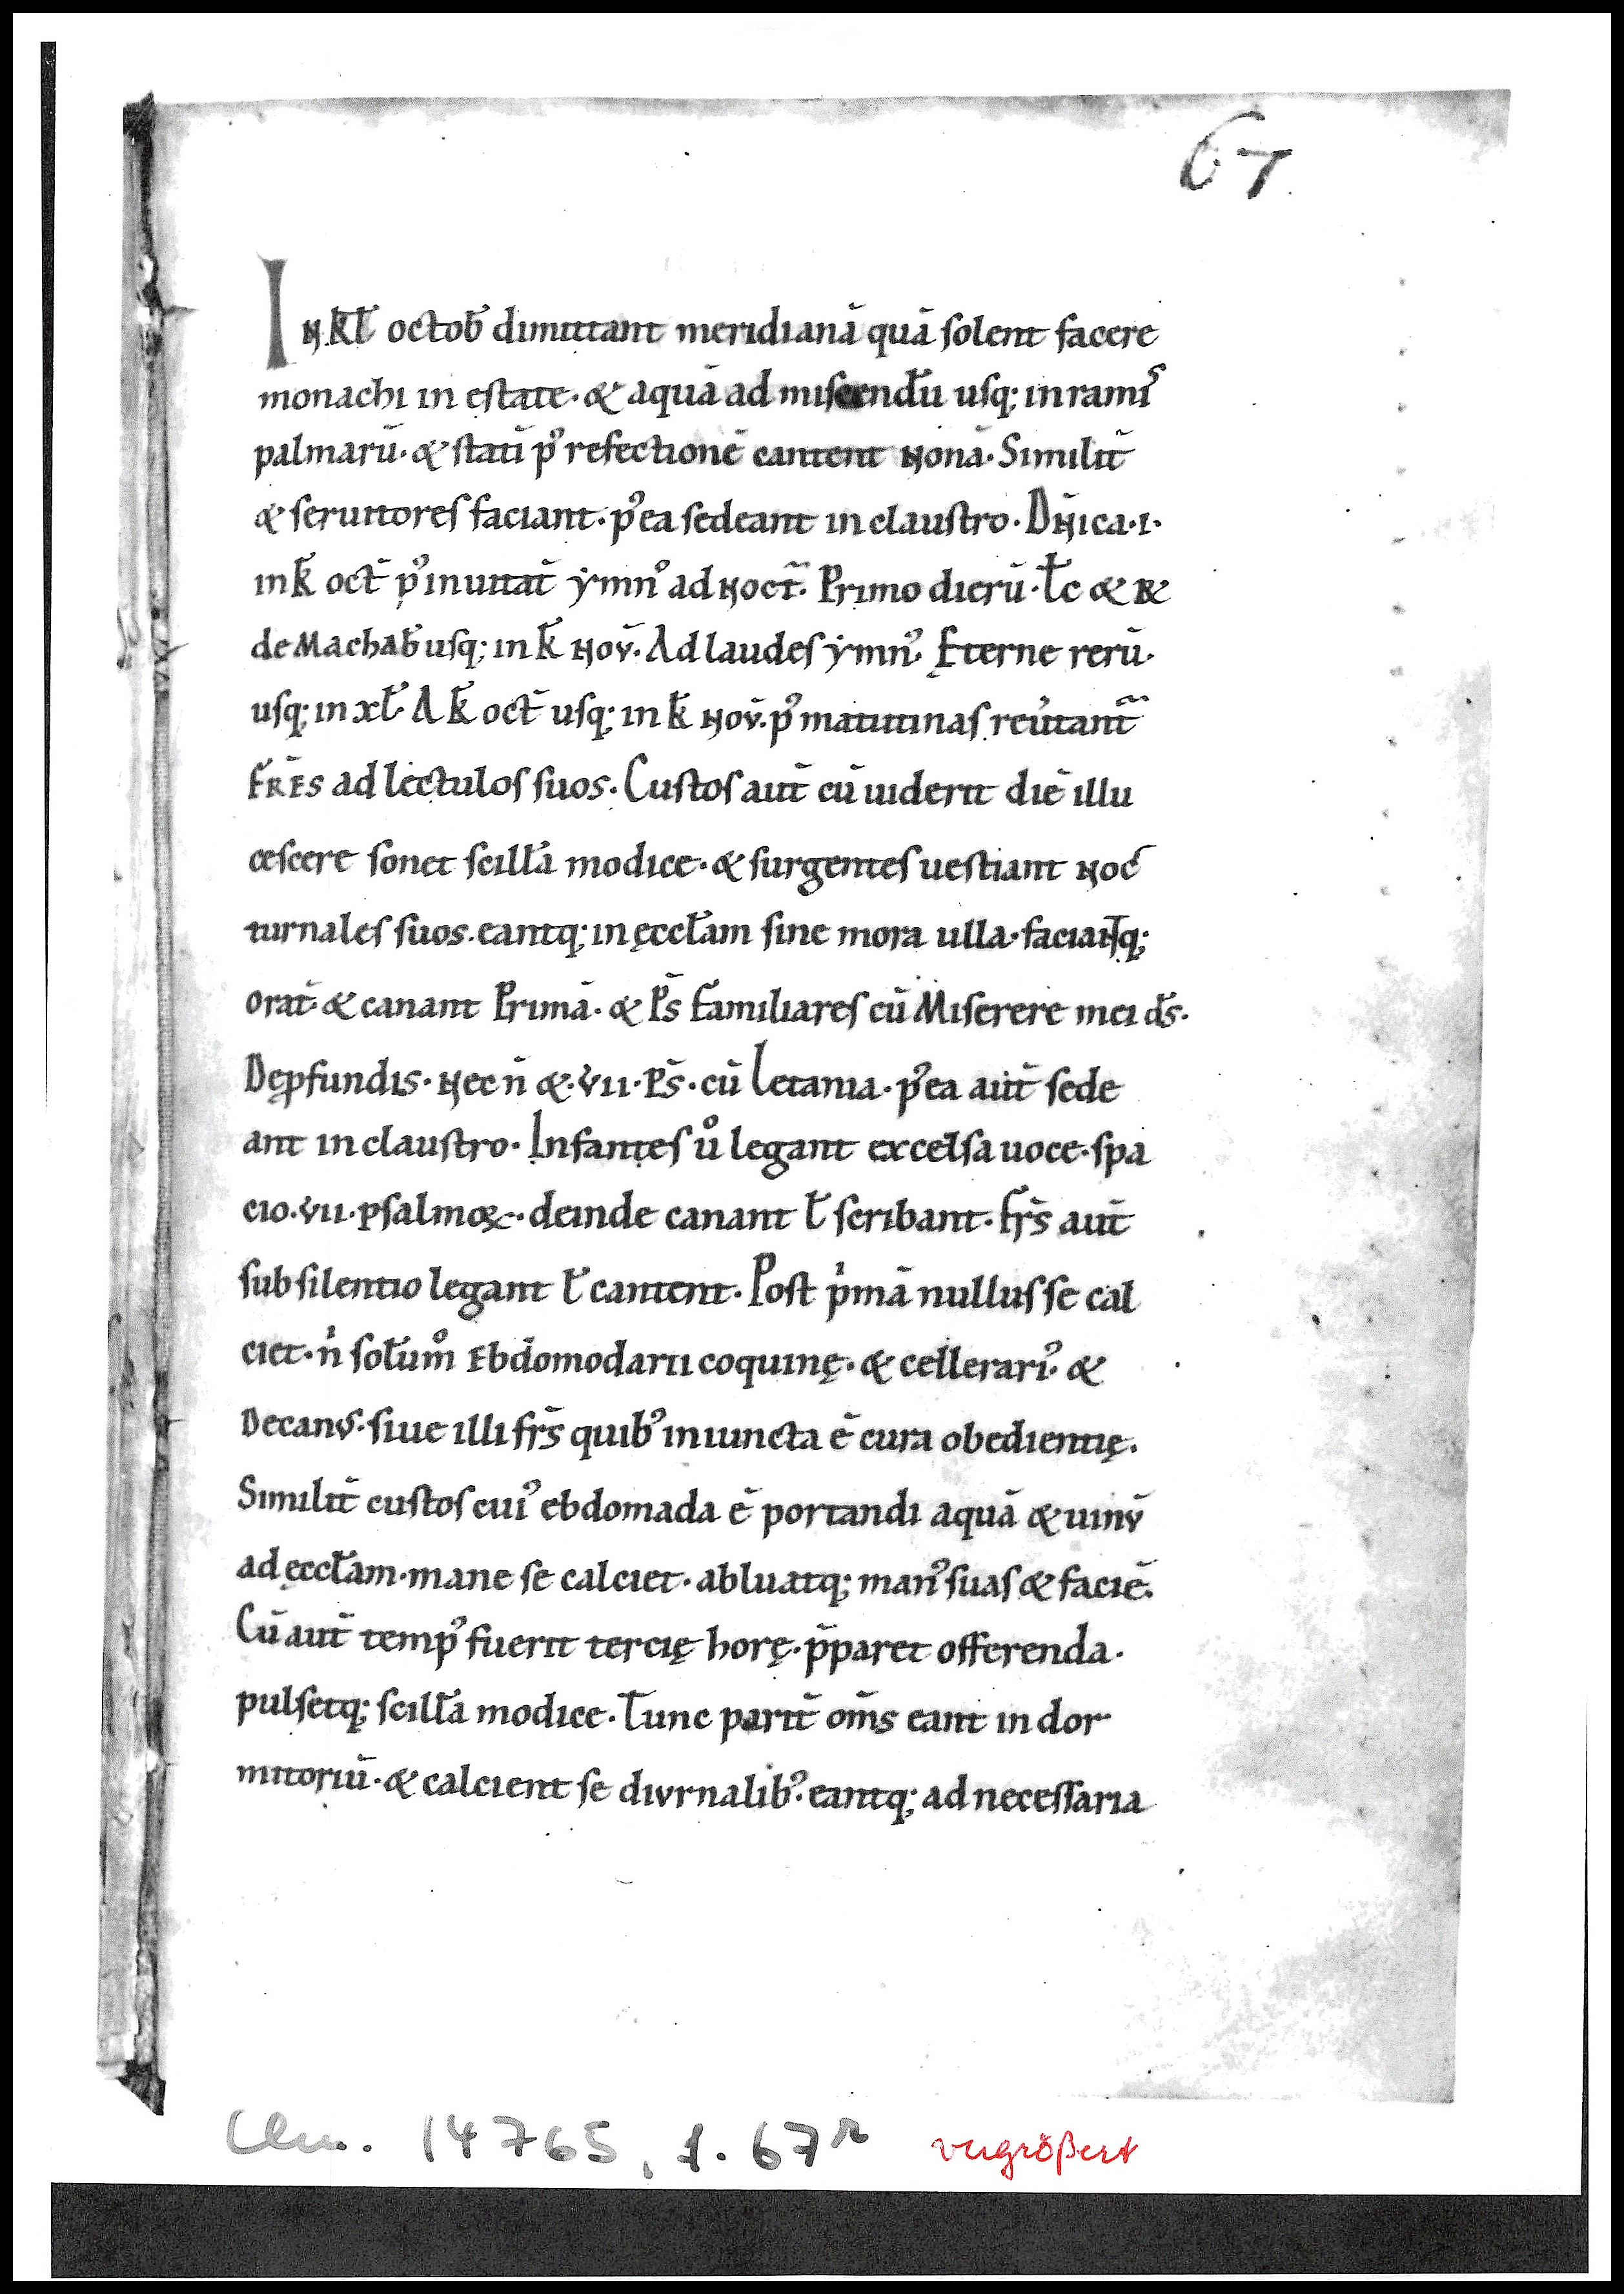 67
IN kl̅ octob̅ dimittant meridianā quā solent facere
monachi in estate· & aquā ad miscendū usq; in ramis
palmarū· & statī pꝰ refectionē cantent Nonā· Similit̄
& seruitores faciant· pꝰea sedeant in claustro· DN̄ica·i·
in k̅ oct̄ pꝰ inuitat̄ ẏmnꝰ ad Noct̄· Primo dierū· Łc & R&
de Machab̄ usq; in k̅ Nov̄· Ad laudes ẏmnꝰ· Ęterne rerū·
usq; in xl̄· A k̅ oct̄ usq; in k̅ Nov̄· pꝰ matutinas reūtant̄
FRĒS ad lectulos suos· Custos aut̄ cū uiderit diē illu
cescere sonet scill̄ā modice· & surgentes uestiant Noc
turnales suos· eantq; in ęccl̄am sine mora ulla· faciantq;
orat̄· & canant Primā· & Ps̄ Familiares cū Miserere mei ds̄·
De ꝓfundis· Necn̄ &·vii·Ps̄·cū Letania· pꝰea aut̄ sede
ant in claustro· Infantes uͦ legant excelsa uoce· spa
cio·vii·psalmoꝝ· deinde canant l̄ scribant· frs̄ aut̄
sub silentio legant l̄ cantent· Post pⁱmā nullus se cal
ciet· nⁱ sol̄ummͦ Ebdomodarii coquinę· & cellerariꝰ· &
Decanus· siue illi frs̄ quibꝰ iniuncta ē cura obedientię·
Similit̄ custos cuiꝰ ebdomada ē portandi aquā & uinv̄
ad ęccl̄am· mane se calciet· abluatq; manꝰ suas & faciē·
Cū aut̄ tempꝰ fuerit tercię horę· p̄paret offerenda·
pulsetq; scill̄ā modice· Tunc parit̄ om̄s eant in dor
mitoriū· & calcient se divrnalibꝰ· eantq; ad necessaria
Clm. 14765, f. 67r vergrößert